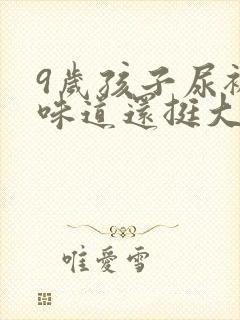 9歲孩子尿裤
味道還挺大
唯愛雪